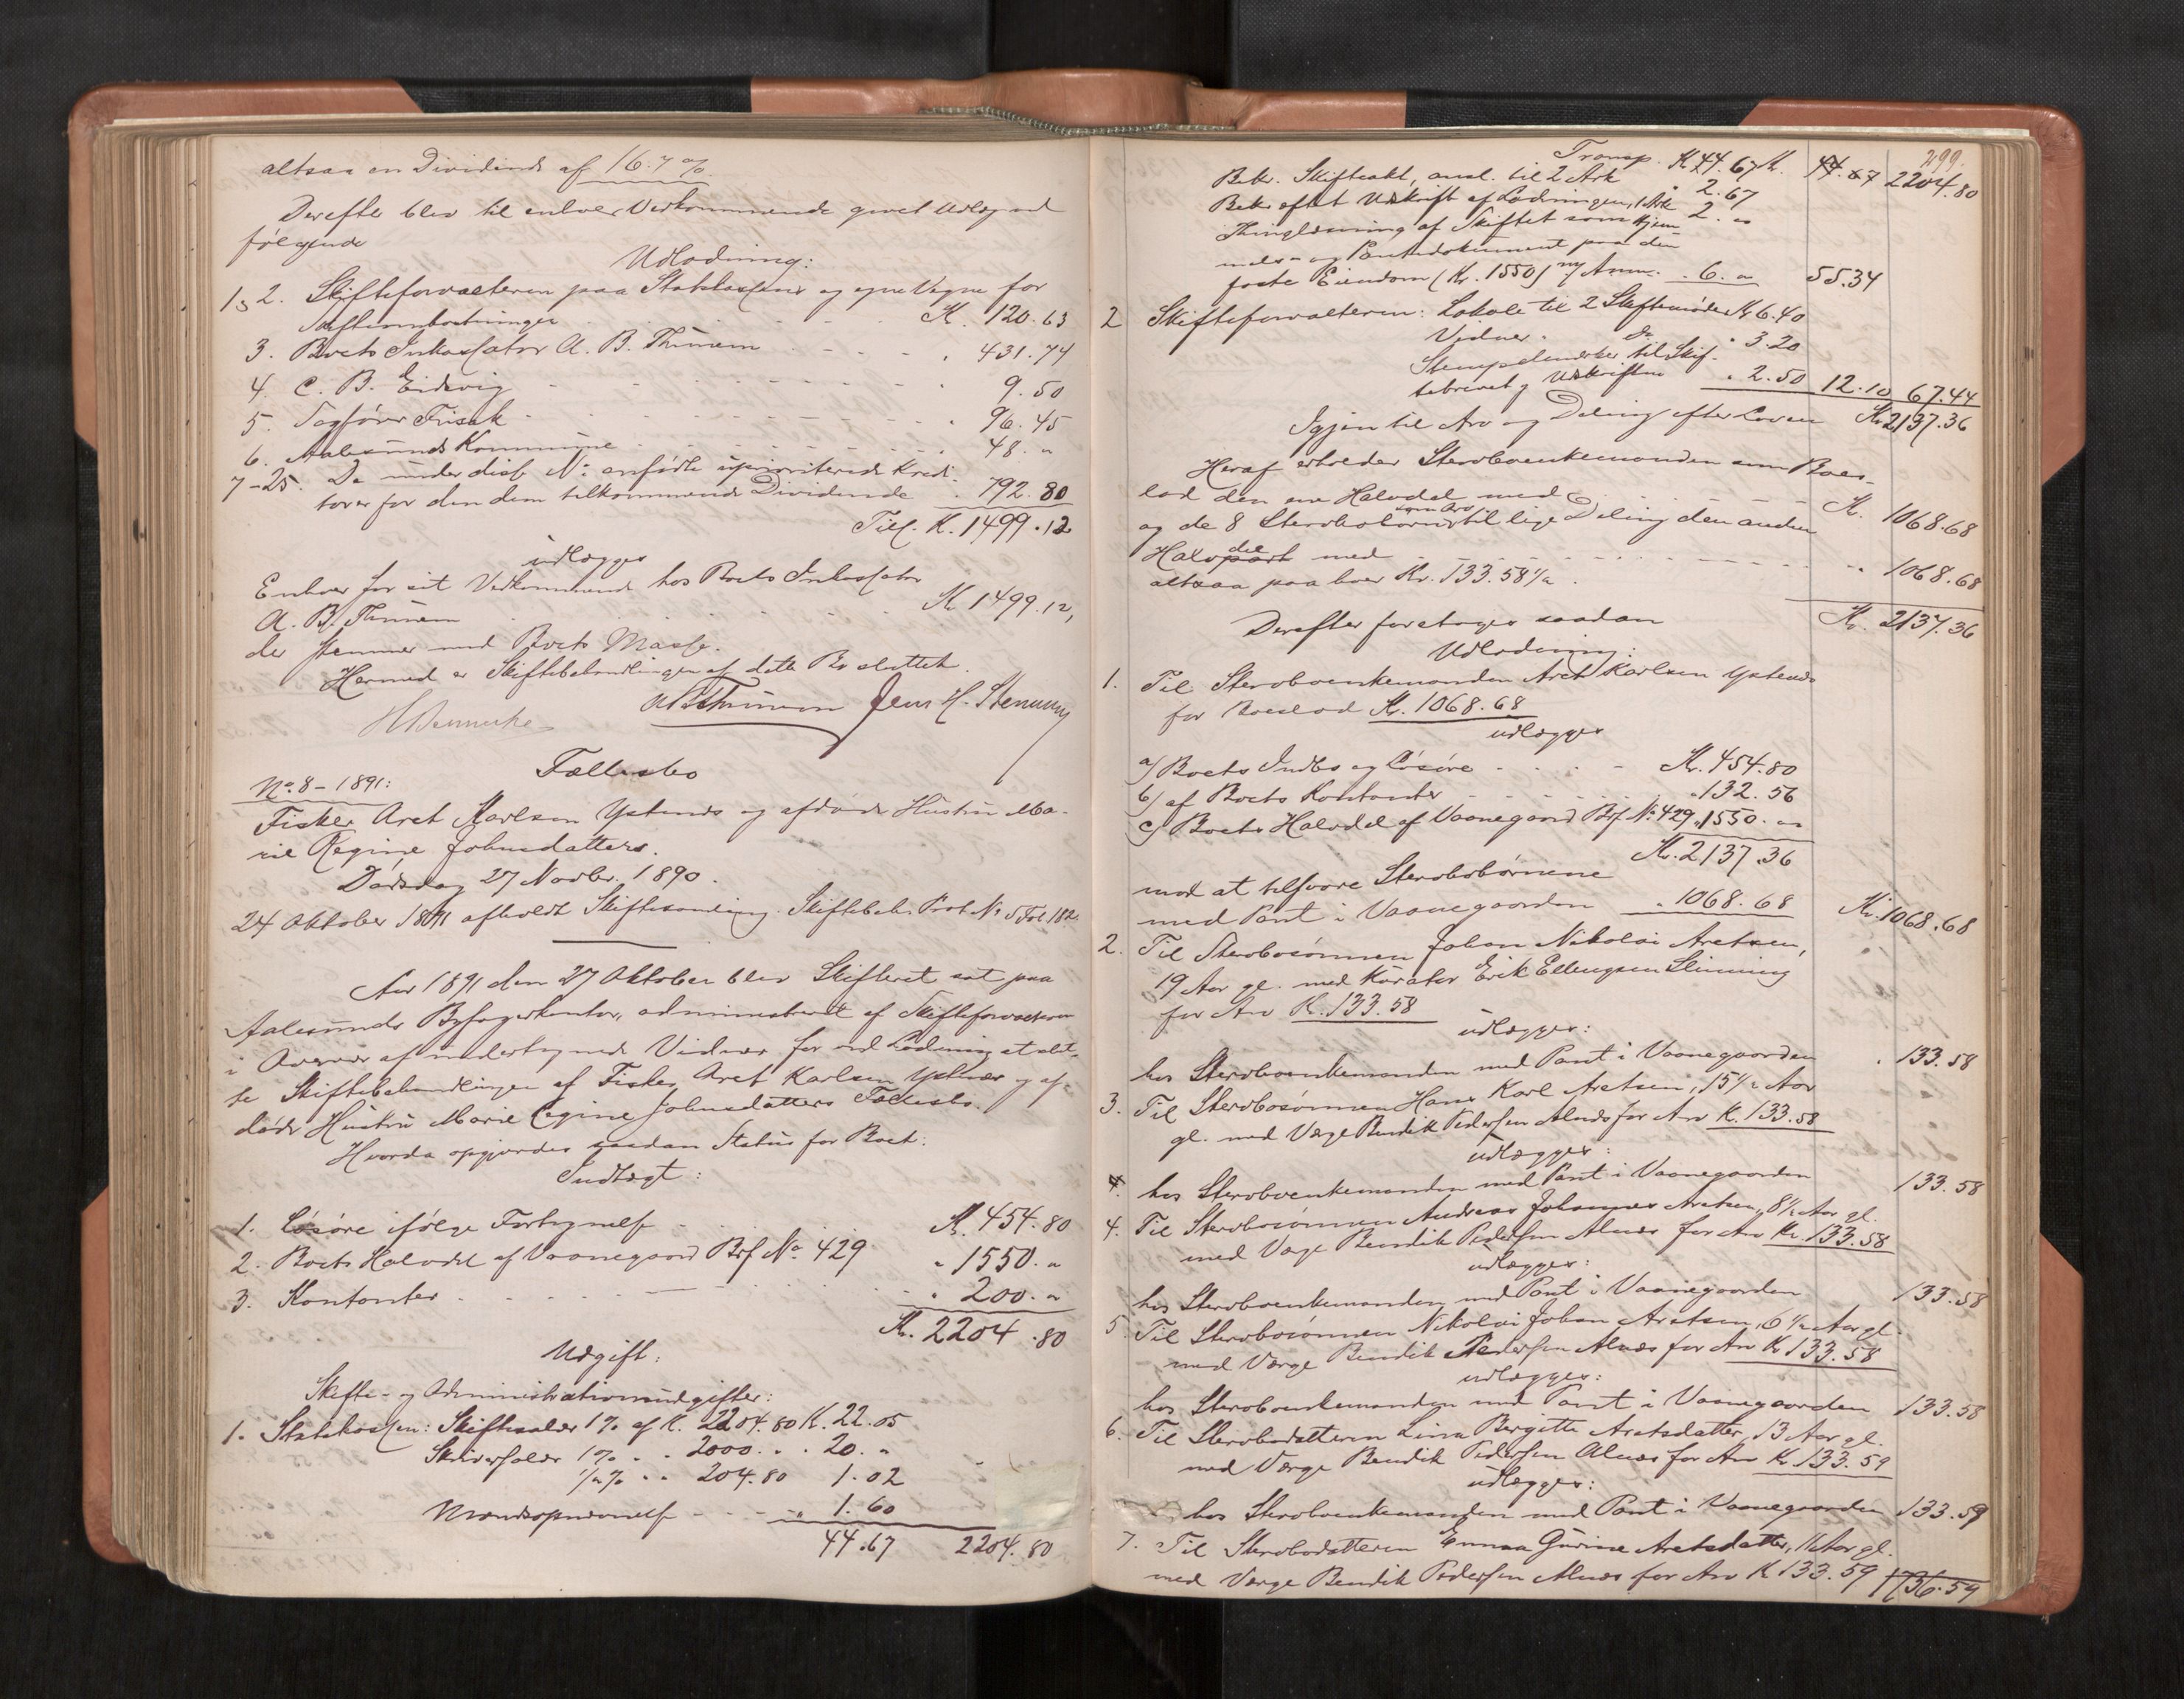 altsaa en Dividende af 16.7 %.
Derefter blev til enhver Vedkommende gjort Udlæg ved
følgende
Udlodning:
1 & 2. Skifteforvalteren paa Statskassens og egne Vegne for
Skifteomkostninger K. 120.63
3. Boets Inkassator A. B. Thinnem . 431.74
4. C. B. Eidsvig . 9.50
5. Sagfører Frisak . 96.45
6. Aalesunds Kommune . 48. "
7-25. De under disse No anførte uprioriterede Kredi-
torer for den dem tilkommende Dividende . 792.80
Tils. K. 1499.12
udlægges
Enhver for sit Vedkommende hos Boets Inkassator
A. B. Thinnem K 1499.12,
der stemmer med Boets Masse.
Hermed er Skiftebehandlingen af dette Bo sluttet.
A B Thinnem Jens H. Stenning
No. 8 - 1891:
Fællesbo
Fisker Aret Karlsen Ystenæs og afdøde Hustru Ma-
rie Regine Johnsdatters.
Dødsdag 27 Novbr. 1890.
24 Oktober 1891 afholdt Skiftesamling. Skiftebeh. Prot No 5 Fol 182.
Aar 1891 den 27 Oktober blev Skifteret sat paa
Aalesunds Byfogedkontor, administreret af Skifteforvalteren
i Overvær af undertegnede Vidner for ved Lodning at slut-
te Skiftebehandlingen af Fisker Aret Karlsen Ystenæs og af-
døde Hustru Marie Regine Johnsdatters Fællesbo.
Hvorda opgjordes saadan Status for Boet:
Indtægt:
1. Løsøre ifølge Fortegnelse K. 454.80
2. Boets Halvdel af Vaanegaard Brf No. 429 " 1550. "
3. Kontanter . 200. "
K. 2204.80
Udgift:
Skifte- og Administrationsudgifter:
1. Statskassen: Skifteafgift 1 % af K. 2204.80 K. 22.05
Skriversalær 1 % . . 2000. . . 20. "
1/2 % . . 204.80 1.02
1.60
44.67 2204.80
299.
Transp. K 44.67 K. 44.67 2204.80
Bek. Skifteakt, ansl. til 2 Ark " 2.67
Bekræftet Udskrift af Lodningen, 1 Ark 2. "
Thinglæsning af Skiftet som Hjem-
mels- og Pantedokument paa den
faste Eiendom (Kr. 1550) m/ Anm. . 6. " 55.34
2 Skifteforvalteren: Lokale til 2 Skiftemøder K 6.40
Vidner. Do . 3.20
Stempelmærker til Skif-
tebrevet og Udskriften . 2.50 12.10 67.44
Igjen til Arv og Deling efter Loven Kr 2137.36
Heraf erholder Stervboenkemanden som Boes-
lod den ene Halvdel med K. 1068.68
og de 8 Stervbobørn som Arv til lige Deling den anden
Halvpart del med " 1068.68
altsaa paa hver Kr. 133.58 1/2.
K. 2137.36
Derefter foretoges saadan
Udlodning:
1. Til Stervboenkemanden Aret Karlsen Ystenæs
for Boeslod K. 1068.68
udlægges
a) Boets Indbo og Løsøre K. 454.80
b) af Boets Kontanter . 132.56
c) Boets Halvdel af Vaanegaard Brf. No 429 . 1550. "
K. 2137.36
mod at tilsvare Stervbobørnene
med Pant i Vaanegaarden . 1068.68 K. 1068.68
2. Til Stervbosønnen Johan Nikolai Aretsen,
19 Aar gl. med Kurator Erik Ellingsen Slinning
for Arv K. 133.58
udlægges:
hos Stervboenkemanden med Pant i Vaanegaarden . 133.58
3. Til Stervbosønnen Hans Karl Aretsen, 15 1/2 Aar
gl. med Værge Bendik Pedersen Alnæs for Arv K. 133.58
udlægges:
hos Stervboenkemanden med Pant i Vaanegaarden 133.58
4. Til Stervbosønnen Andreas Johannes Aretsen, 8 1/2 Aar gl.
med Værge Bendik Pedersen Alnæs for Arv Kr. 133.58
udlægges:
hos Stervboenkemanden med Pant i Vaanegaarden 133.58
5. Til Stervbosønnen Nikolai Johan Aretsen, 6 1/2 Aar gl.
med Værge Bendik Pedersen Alnæs for Arv K 133.58
udlægges:
hos Stervboenkemanden med Pant i Vaanegaarden 133.58
6. Til Stervbodatteren Lina Bergitte Aretsdatter, 13 Aar gl.
med Værge Bendik Pedersen Alnæs for Arv K. 133.59
udlægges:
hos Stervboenkemanden med Pant i Vaanegaarden 133.59
7. Til Stervbodatteren Emma Gurine Aretsdatter, 11 Aar gl.
med Værge Bendik Pedersen Alnæs for Arv K 133.59 1736.59